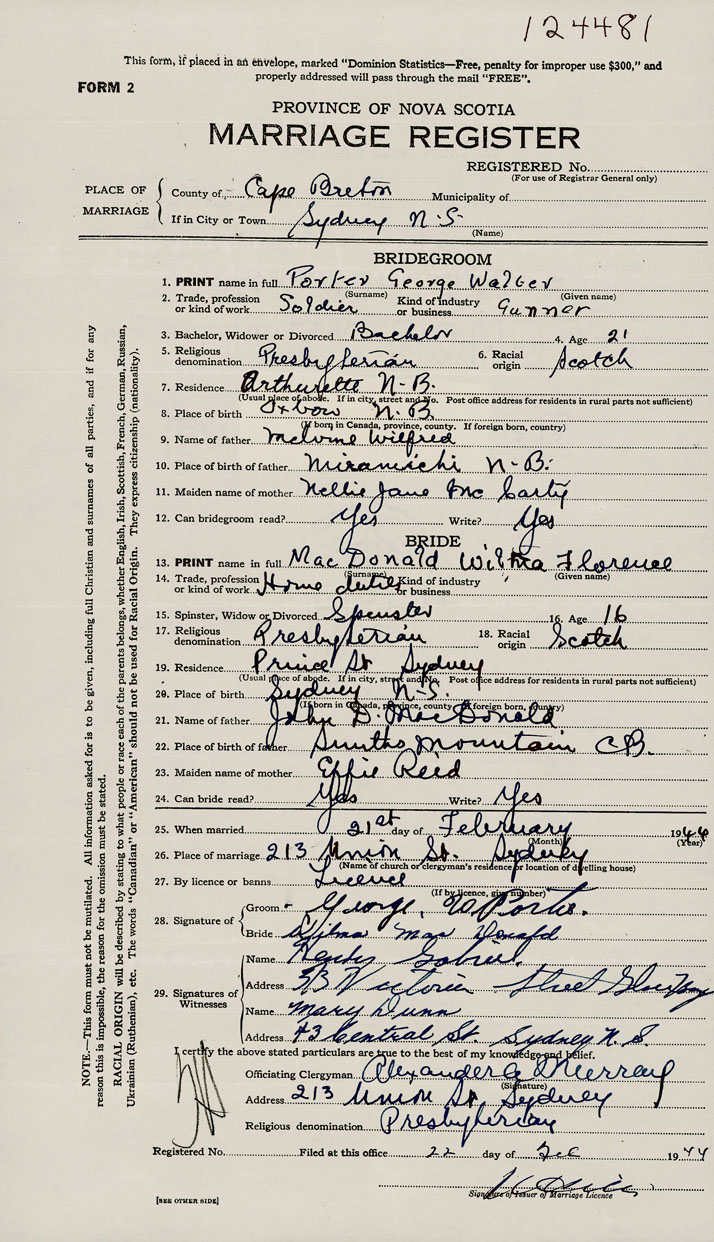 124481
This form, if placed in an envelope, marked "Dominion Statistics—Free, penalty for improper use $300," and
properly addressed will pass through the mail "FREE".
FORM 2
PROVINCE OF NOVA SCOTIA
MARRIAGE REGISTER
REGISTERED No.
(For use of Registrar General only)
PLACE OF MARRIAGE
County of Cape Breton Municipality of
If in City or Town Sydney N-S-
(Name)
BRIDEGROOM
1. PRINT name in full Porter George Walter
(Surname) (Given name)
2. Trade, profession or kind of work Soldier Kind of industry or business Gunner
3. Bachelor, Widower or Divorced Bachelor 4. Age 21
5. Religious denomination Presbyterian 6. Racial origin Scotch
7. Residence Arthurette N-B.
(Usual place of abode. If in city, street and No. Post office address for residents in rural parts not sufficient)
8. Place of birth Oxbow N.B.
(If born in Canada, province, county. If foreign born, country)
9. Name of father Wilfred
10. Place of birth of father Miramichi N-B.
11. Maiden name of mother Nellie Jane Mc Carty
12. Can bridegroom read? Yes Write? Yes
BRIDE
13. PRINT name in full Mac Donald Wilma Florence
(Surname) (Given name)
14. Trade, profession or kind of work Home duties Kind of industry or business
15. Spinster, Widow or Divorced Spinster 16. Age 16
17. Religious denomination Presbyterian 18. Racial origin Scotch
19. Residence Prince St Sydney
(Usual place of abode. If in city, street and No. Post office address for residents in rural parts not sufficient)
20. Place of birth Sydney N-S.
(If born in Canada, province, county. If foreign born, country)
21. Name of father John D. MacDonald
22. Place of birth of father Mountain C.B.
23. Maiden name of mother Effie Reid
24. Can bride read? Yes Write? Yes
25. When married 21st day of February 1944
(Month) (Year)
26. Place of marriage 213 Union St. Sydney
(Name of church or clergyman's residence or location of dwelling house)
27. By licence or banns Licence
(If by licence, give number)
28. Signature of
Groom George W Porter.
Bride Wilma Mac Donald
29. Signatures of Witnesses
Name
Address Victoria Street
Name Mary Dunn
Address 43 Central St Sydney N.S.
I certify the above stated particulars are true to the best of my knowledge and belief.
Officiating Clergyman Alexander Murray
(Signature)
Address 213 Union St. Sydney
Religious denomination Presbyterian
Registered No. Filed at this office 22 day of 1944
Signature of Issuer of Marriage Licence
[SEE OTHER SIDE]
NOTE.—This form must not be mutilated. All information asked for is to be given, including full Christian and surnames of all parties, and if for any
reason this is impossible, the reason for the omission must be stated.
RACIAL ORIGIN will be described by stating to what people or race each of the parents belongs, whether English, Irish, Scottish, French, German, Russian,
Ukrainian (Ruthenian), etc. The words "Canadian" or "American" should not be used for Racial Origin. They express citizenship (nationality).